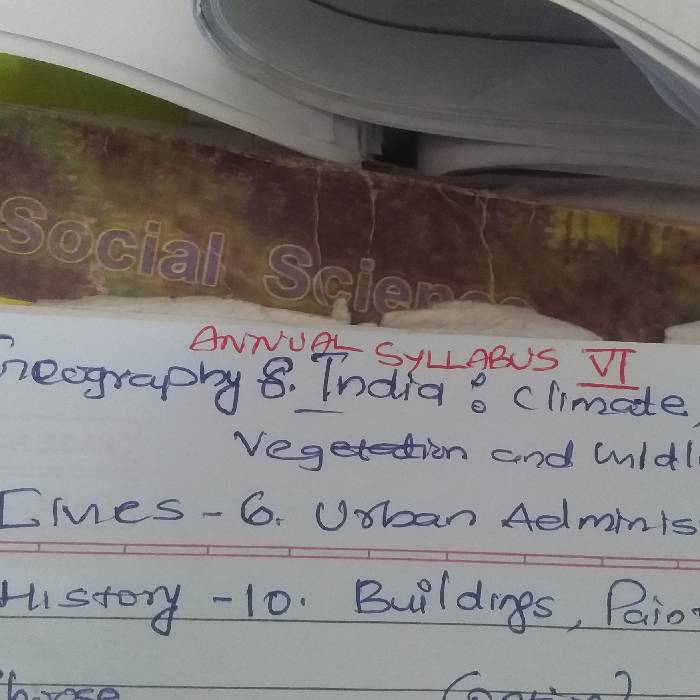 Social Science
ANNUAL SYLLABUS VI
Geography 8. India : Climate,
Vegetation and wildli
Civics - 6. Urban Adminis
History - 10. Buildings, Pain